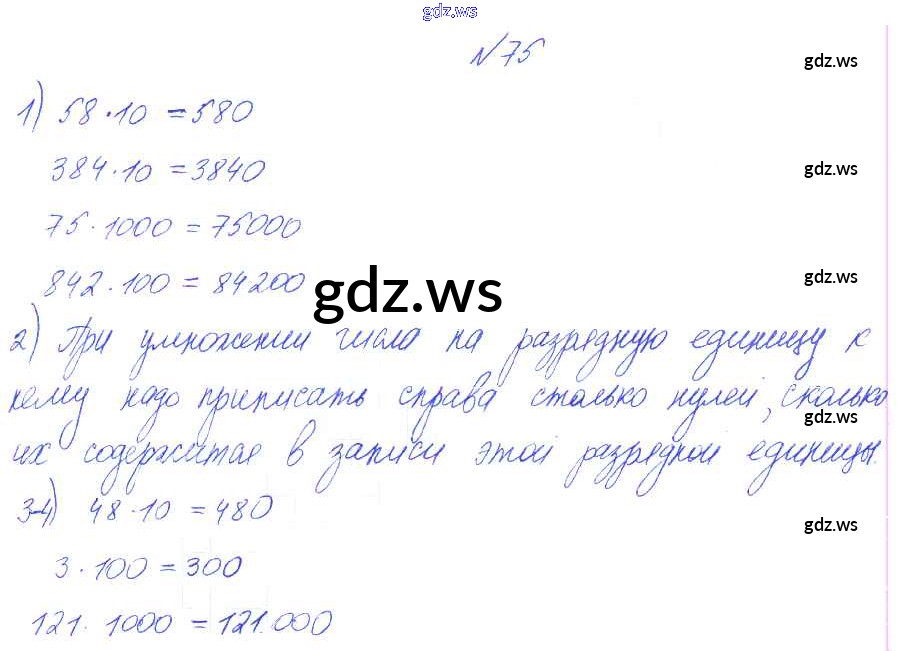 gdz.ws
№75
gdz.ws
1) 58·10 = 580
384·10 = 3840
gdz.ws
75·1000 = 75000
842·100 = 84200
gdz.ws
gdz.ws
2) При умножении числа на разрядную единицу к
нему надо приписать справа столько нулей, сколько
gdz.ws
их содержится в записи этой разрядной единицы.
3-4) 48·10 = 480
gdz.ws
3·100 = 300
121·1000 = 121.000